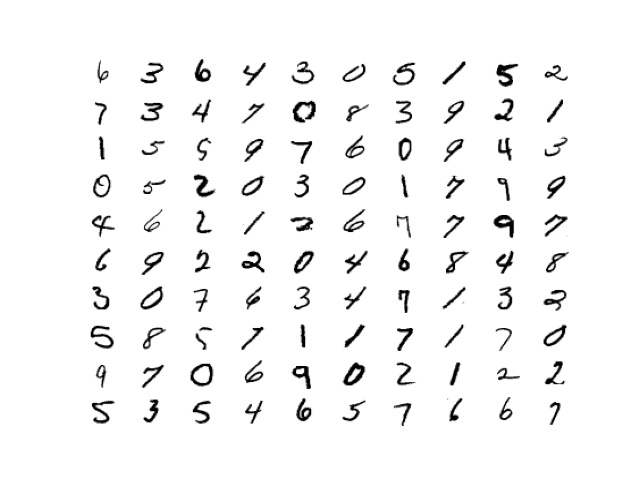 6 3 6 4 3 0 5 1 5 2
7 3 4 7 0 8 3 9 2 1
1 5 5 9 7 6 0 9 4 3
0 5 2 0 3 0 1 7 9 9
4 6 2 1 2 6 7 7 9 7
6 9 2 2 0 4 6 8 4 8
3 0 7 6 3 4 7 1 3 2
5 8 5 7 1 1 7 1 7 0
9 7 0 6 9 0 2 1 2 2
5 3 5 4 6 5 7 6 6 7